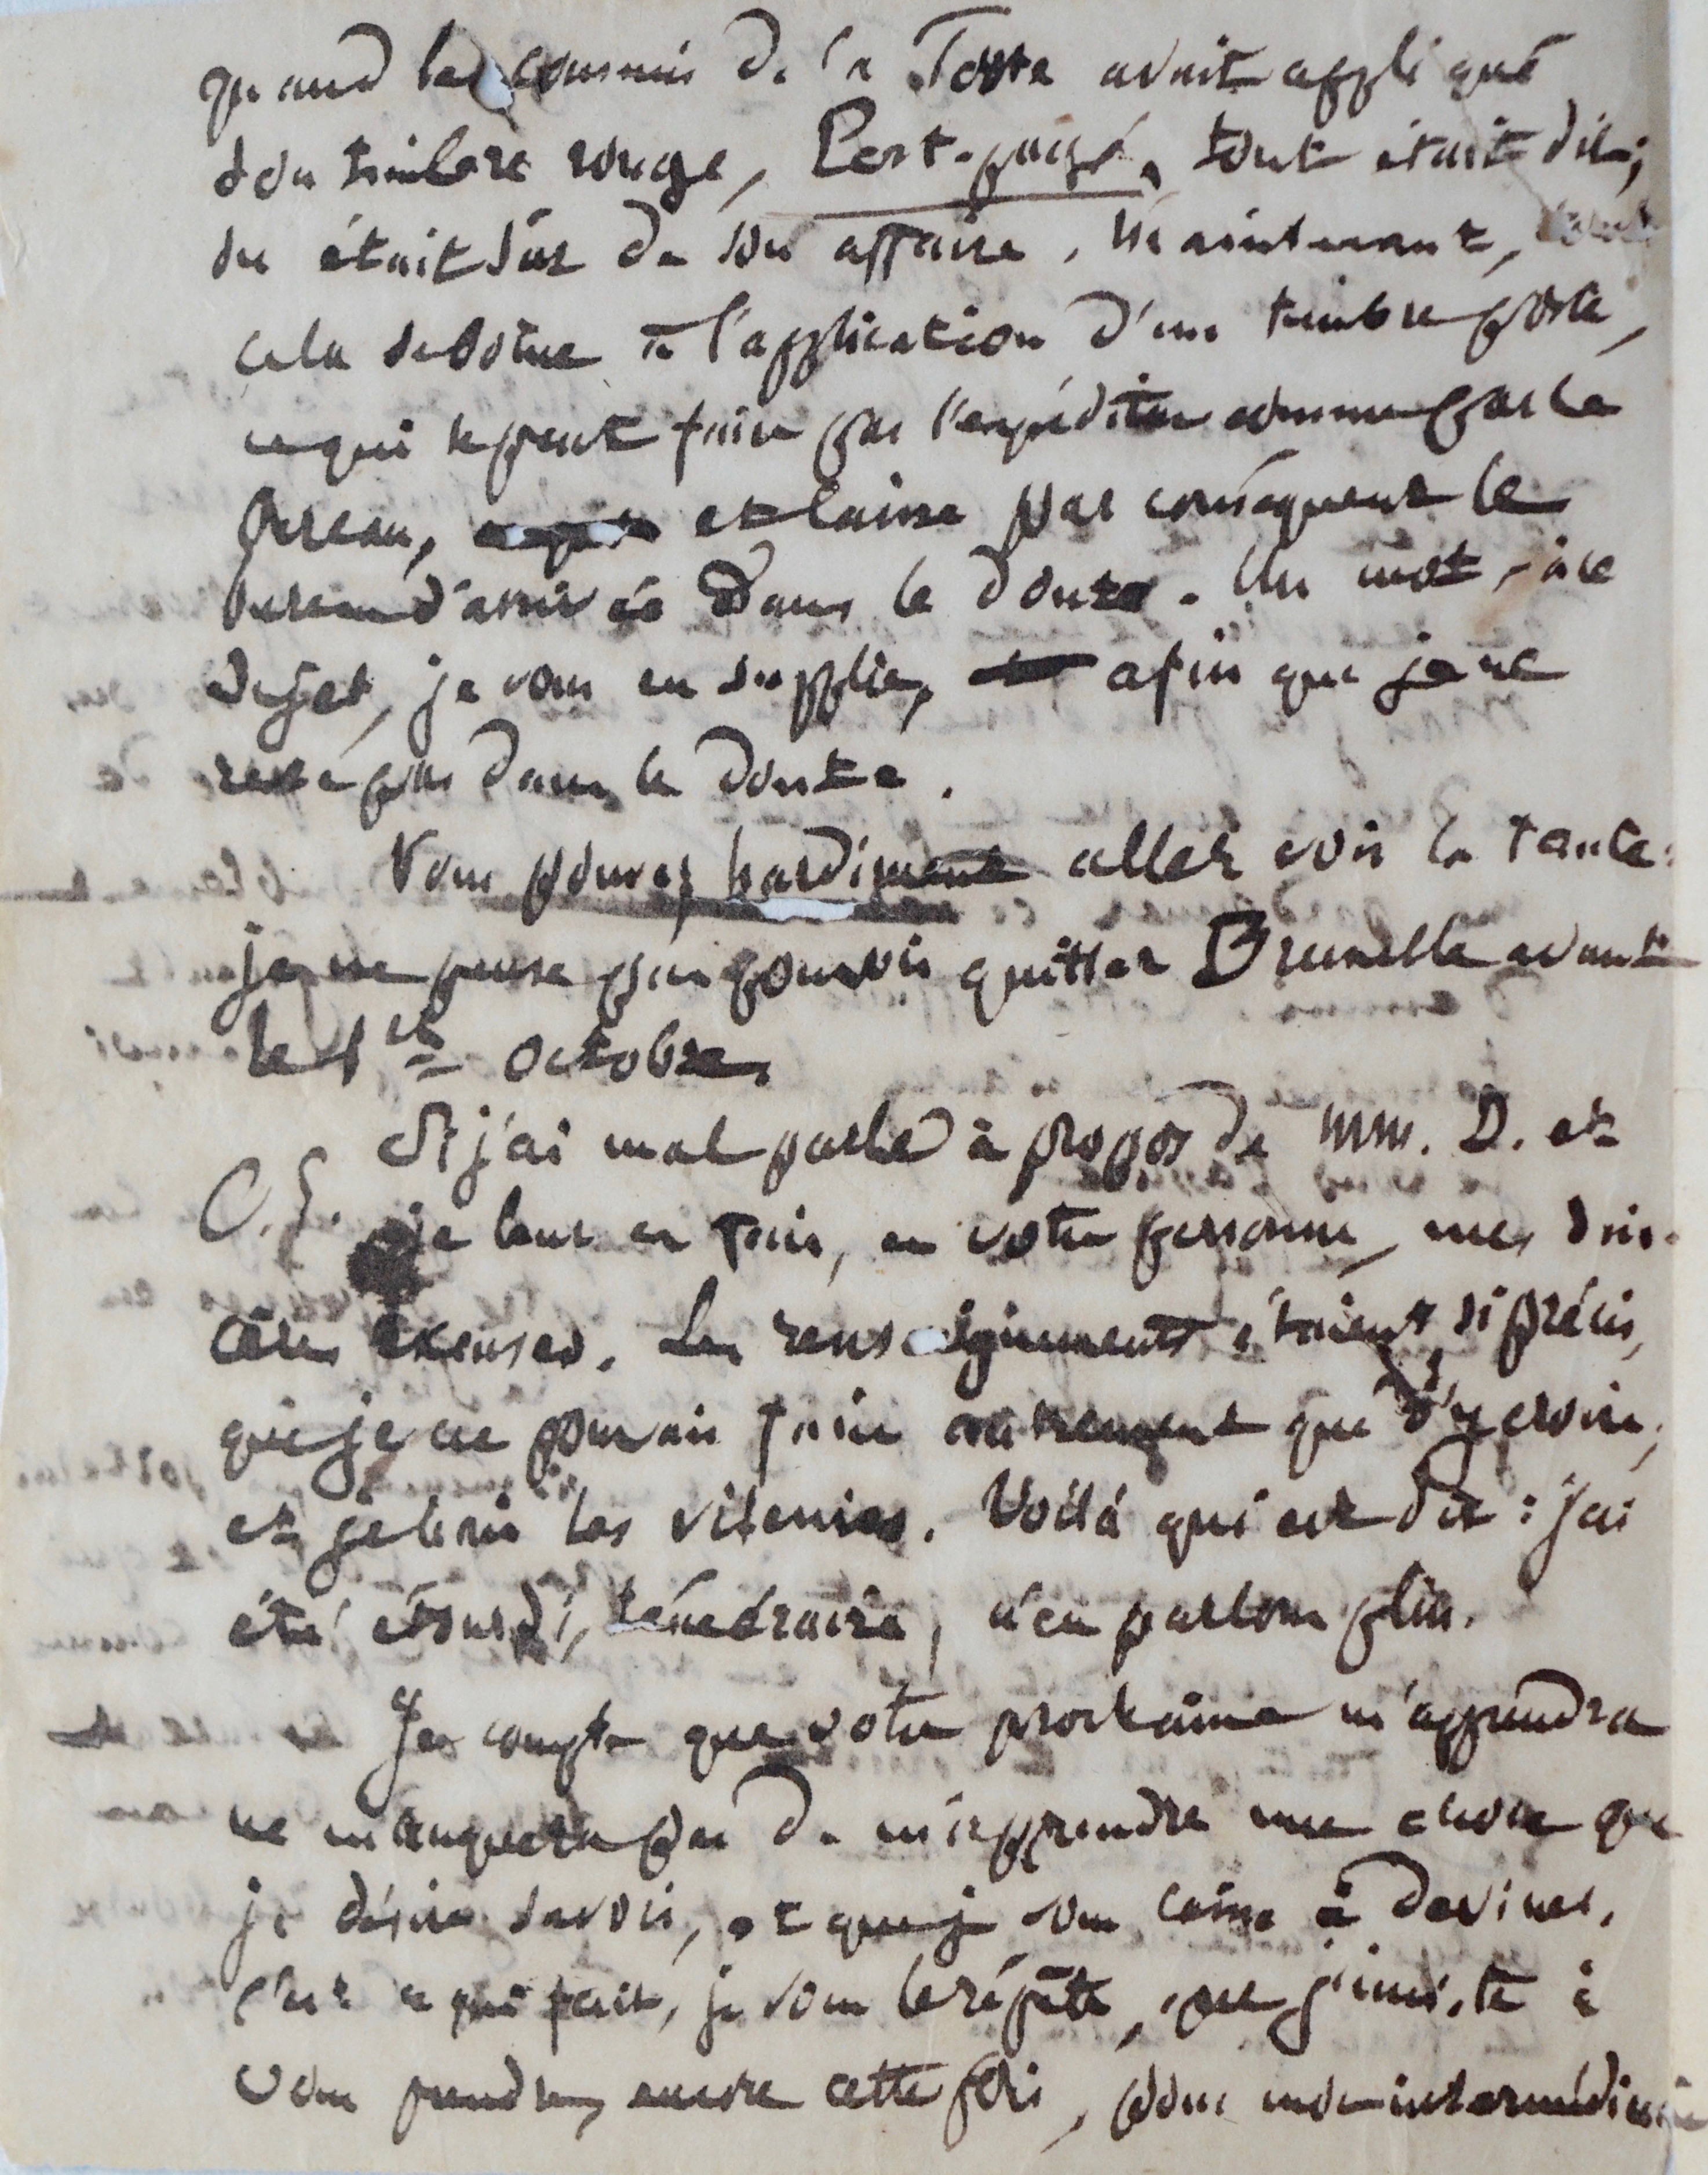 quand le commis de la Poste avait appliqué
son timbre rouge, Port-payé, tout était dit;
on était sûr de son affaire. Maintenant, tout
cela se borne à l'application d'un timbre poste,
ce qui se peut faire par l'expéditeur comme par le
bureau, et laisse par conséquent le
bureau d'arrivée dans le doute. Un mot, à ce
sujet, je vous en supplie, afin que je ne
reste pas dans le doute.
Vous pouvez hardiment aller voir la tante:
je ne pense pas pouvoir quitter Bruxelles avant
le 1er octobre.
Si j'ai mal parlé à propos de MM. D. et
C. E. je leur en fais, en votre personne, mes sin-
cères excuses. Les renseignements étaient si précis,
que je ne pouvais faire autrement que d'y croire;
et je brisai les vilenies. Voilà qui est dit: j'ai
été étourdi, téméraire, n'en parlons plus.
Je compte que votre prochaine m'apprendra
ne manquera pas de m'apprendre une chose que
je désire savoir, et que je vous laisse à deviner.
C'est ce qui fait, je vous le répète, que j'insiste à
vous prendre, encore cette fois, pour mon intermédiaire